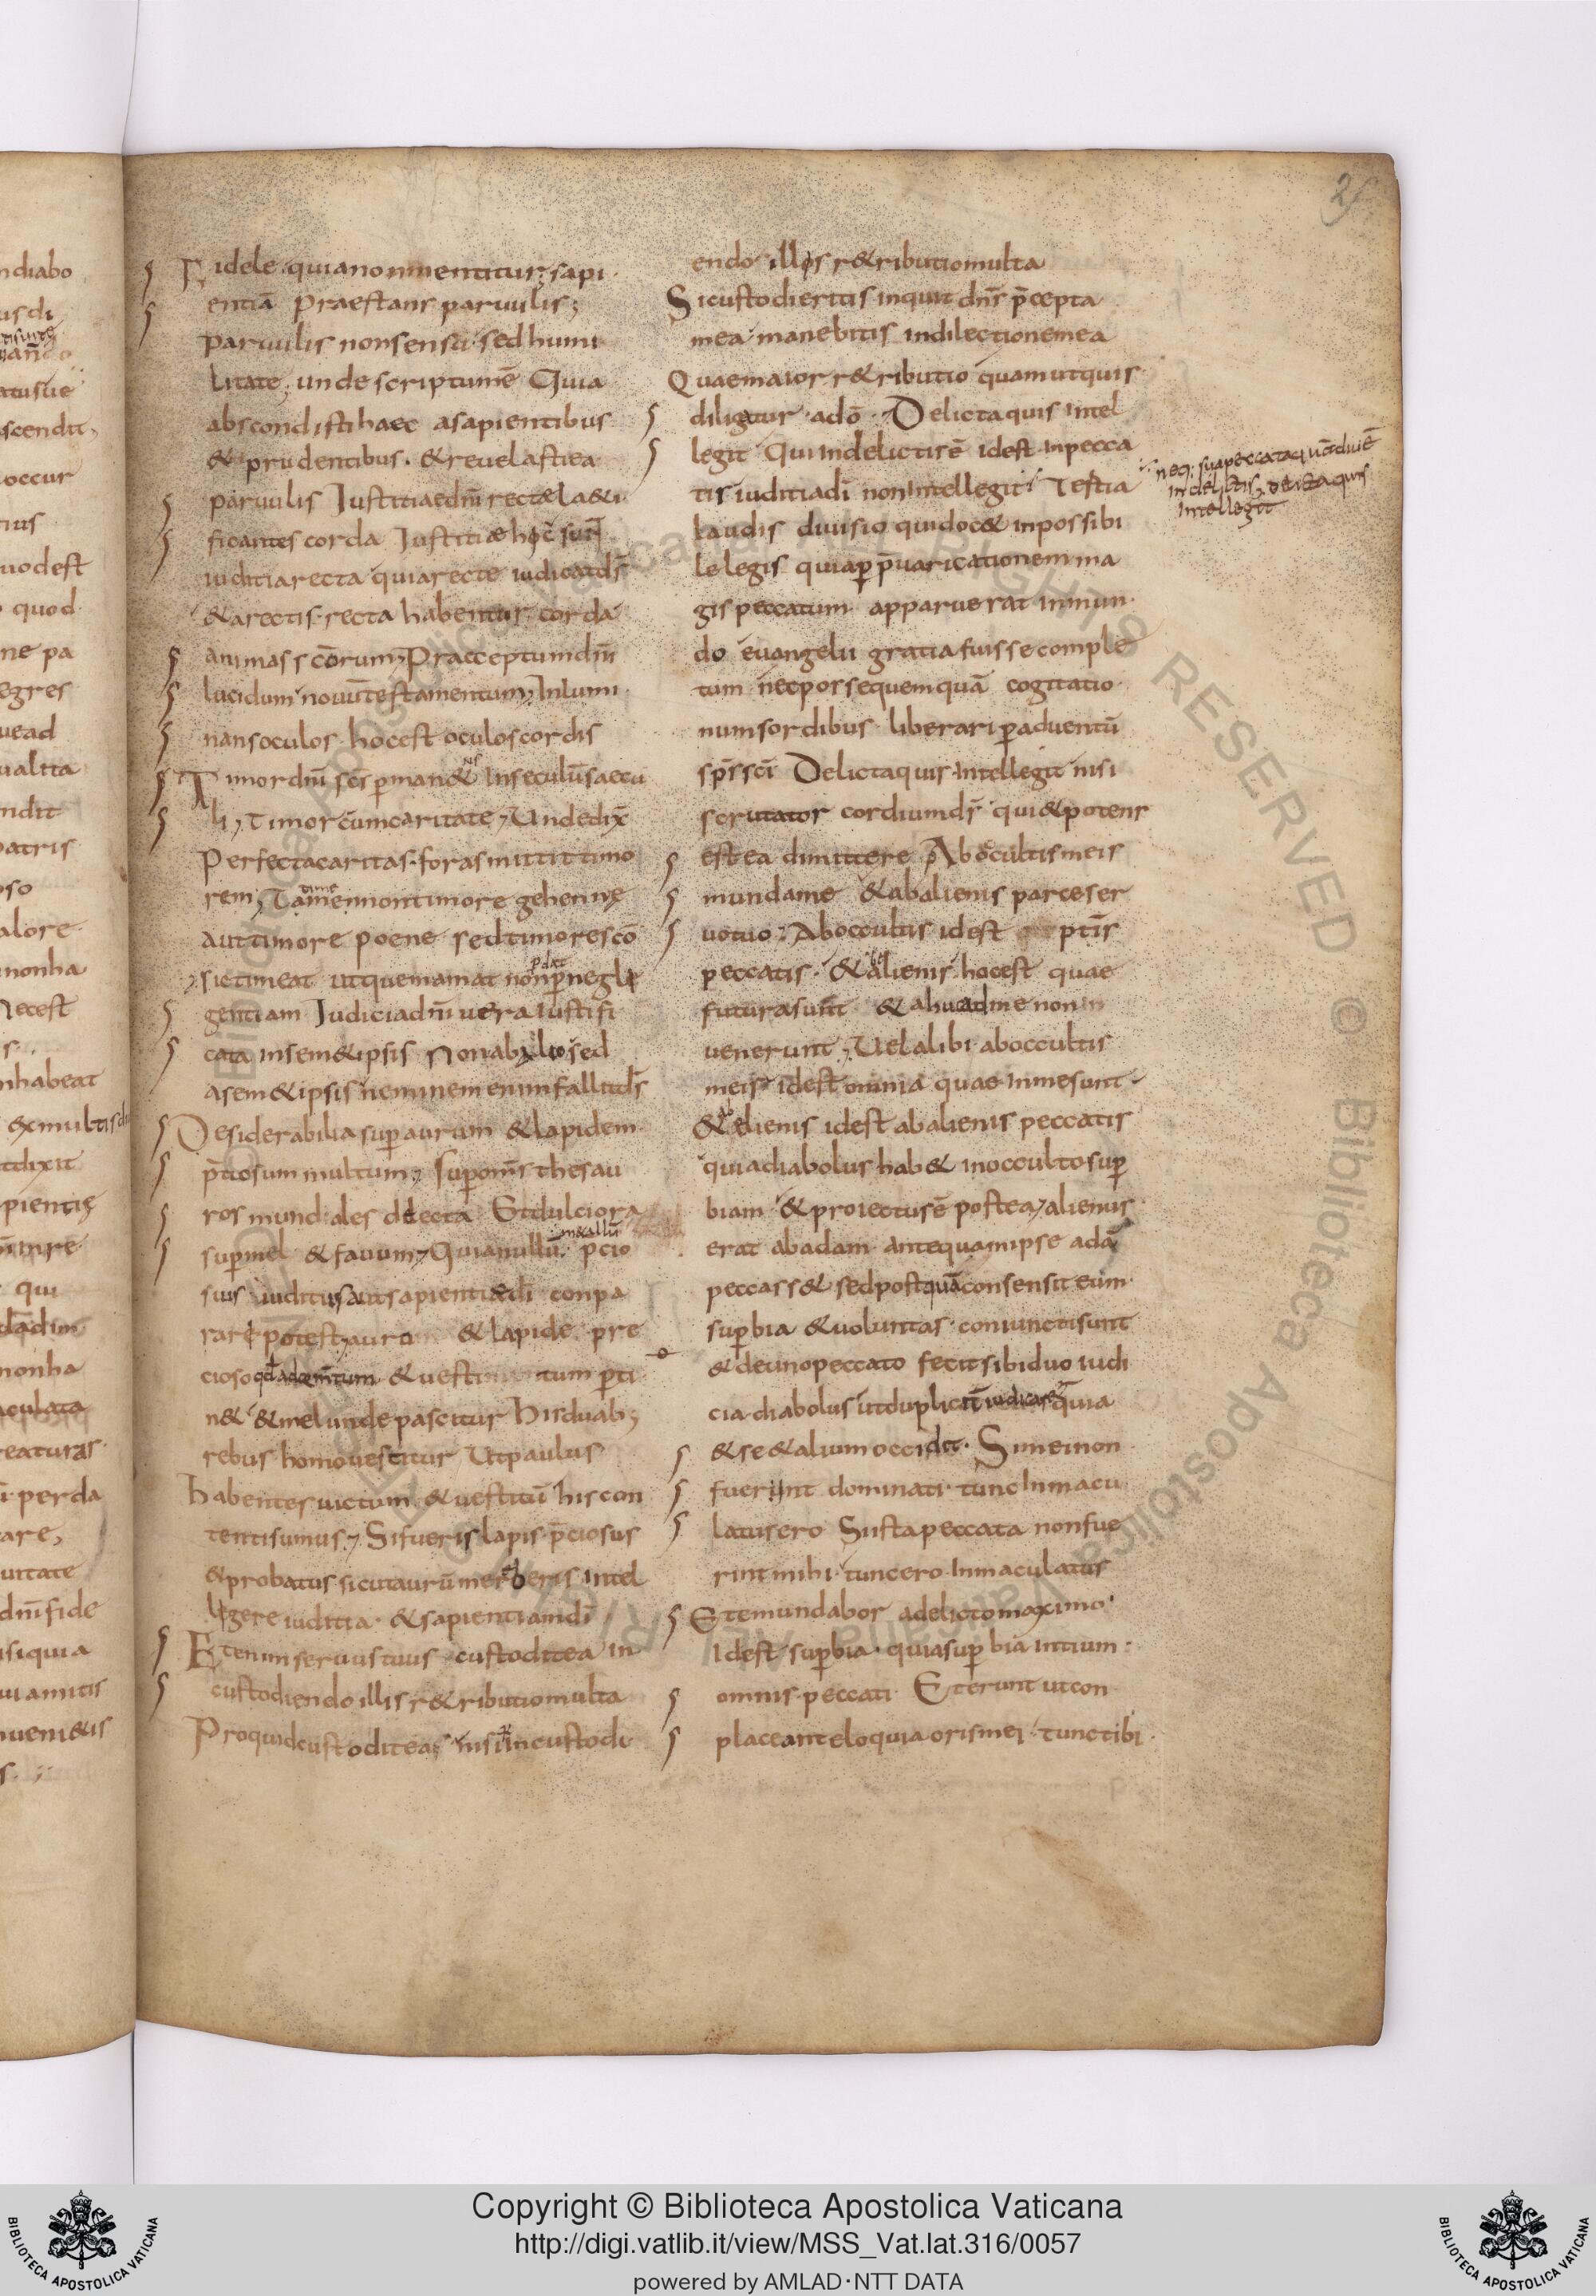 25
Fidele quia non mentitur; sapi
entiā Praestans paruulis;
Paruulis non sensu sed humi
litate; unde scriptumē Quia
abscondisti haec a sapientibus
& prudentibus. & reuelasti ea
paruulis Iustitiae dn̄i rectae la&i
ficantes corda Iustitiae hoc sun̄t
iuditia recta quia recte iudicat ds̄
& a rectis recta habentur corda
animas scōrum; Praeceptum dn̄i
lucidum nouūtestamentum; Inlumi
nans oculos hoc est oculos cordis
Timor dn̄i scs̄ perman& In seculūsaecu
li; Timor cum caritate; Unde dix̄
Perfecta caritas foras mittit timo
rem; Tamen non timore gehennę
aut timore poene sed timore scō
sic timeat ut quem amat non p̱ negle
gentiam Iudicia dn̄i uera iustifi
cata in sem&ipsis Non ab alio sed
a sem&ipsis neminem enim fallit ds̄
Desiderabilia sup̱ aurum & lapidem
p̄tiosum multum; sup̱ omn̄s thesau
ros mundiales Et dulciora
sup̱ mel & fauum; Quia nullū p̄cio
sius iuditiis aut sapientiae dī conpa
rare potest; auro & lapide pre
cioso & uesti tum p̱ti
n& & mel unde pascitur His duab;
rebus homo uestitur Ut paulus
habentes uictum & uestitū his con
tenti sumus; Si fueris lapis p̄ciosus
& probatus sicut aurū mereberis intel
legere iuditia & sapientiam dī
Etenim seruus tuus custodit ea in
custodiendo illis r&ributio multa
Pro quid custodit ea nisi in custodi
endo illos r&ributio multa
Si custodieritis inquit dn̄s p̄cepta
mea manebitis in dilectione mea
Quae maior r&ributio quam ut quis
diligatur a dō Delicta quis intel
legit Qui in delictis ē id est in pecca
tis iuditia dī non Intellegit Testia
laudis diuisio quid oc& inpossibi
le legis quia p̱ p̄uaricationem ma
gis peccatum apparuerat in mun
do euangelii gratia fuisse comple
tum nec posse quemquā cogitatio
num sordibus liberari p̱ aduentū
sp̄s scī Delicta quis Intellegit nisi
scrutator cordium ds̄ qui & potens
est ea dimittere Ab occultis meis
munda me & ab alienis parce ser
uo tuo; Ab occultis id est ptīs
peccatis & ab alienis hoc est quae
futura sunt & ad me non
uenerunt; Uel alibi ab occultis
meis id est omnia quae in me sunt
& ab alienis id est ab alienis peccatis
quia diabolus hab& in occulto sup̱
biam & proiectus ē postea; alienus
erat ab adam antequam ipse adā
peccass& sed postquā consensit eum
sup̱bia & uoluntas coniuncti sunt
& de uno peccato fecit sibi duo iudi
cia diabolus ut dupliciter iudicar&ur quia
& se & alium occidit Si mei non
fuerint dominati tunc Inmacu
latus ero Si ista peccata non fue
rint mihi tunc ero Inmaculatus
Et emundabor a delicto maximo
Id est sup̱bia quia sup̱bia initium
omnis peccati Et erunt ut con
placeant eloquia oris mei tunc tibi
neq; sua peccata quādiu ē
in delictis; Delicta quis
Intellegit
Copyright © Biblioteca Apostolica Vaticana
http://digi.vatlib.it/view/MSS_Vat.lat.316/0057
powered by AMLAD·NTT DATA
BIBLIOTECA APOSTOLICA VATICANA
BIBLIOTECA APOSTOLICA VATICANA